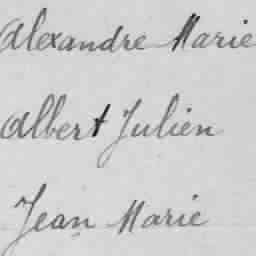 Alexandre Marie
Albert Julien
Jean Marie